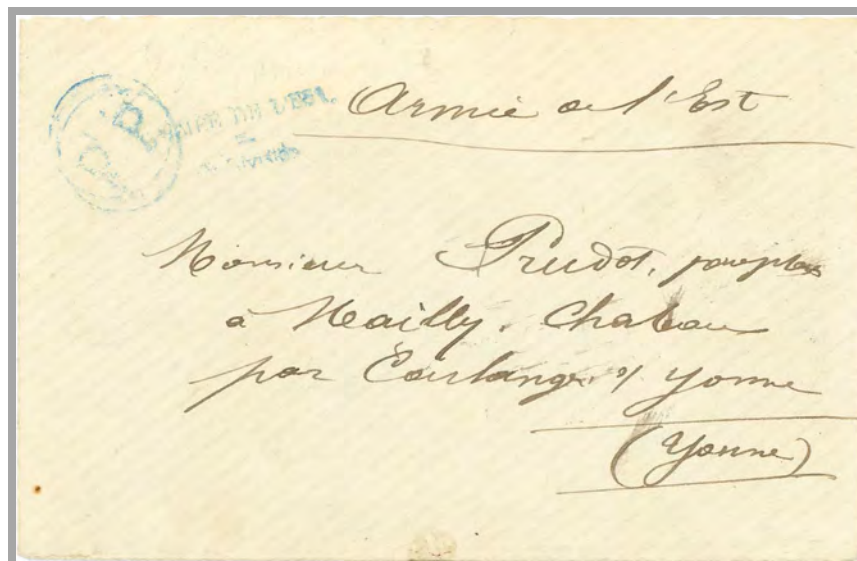 P.P.
ARMÉE DE L'EST.
Armée de l'Est
Monsieur Prudot,
à Mailly. Chateau
par Coulanges s/ Yonne
(Yonne)